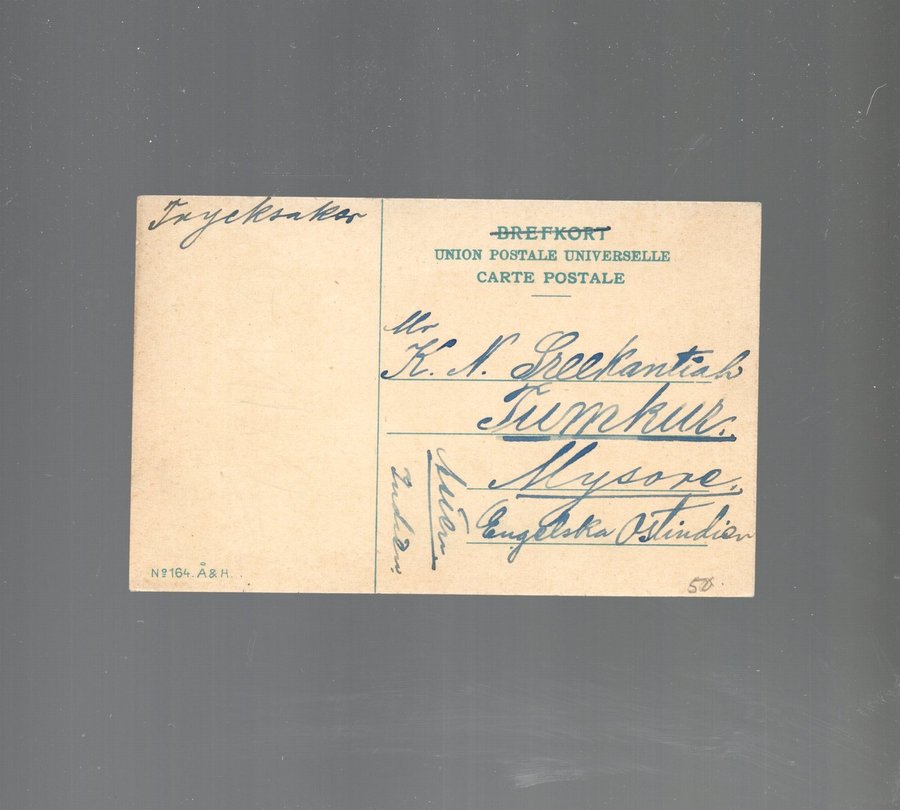 Trycksaker
BREFKORT
UNION POSTALE UNIVERSELLE
CARTE POSTALE
Mr
K. N. Sreekantiah
Tumkur.
Mysore.
Engelska Ostindien
Indien
Nº 164. Å & H.
50